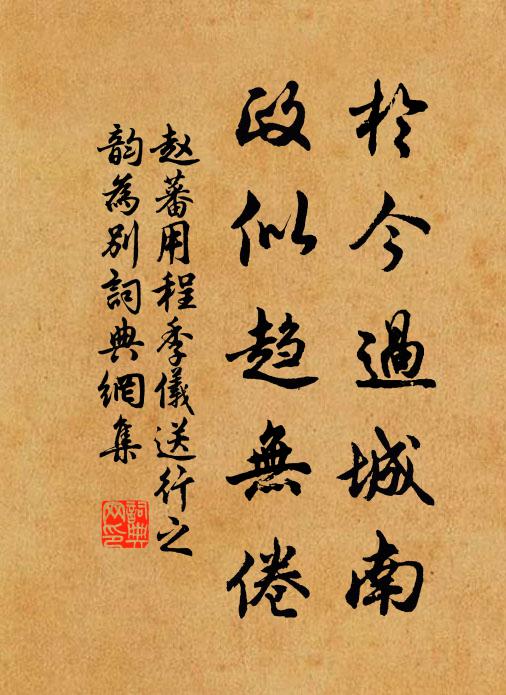 於今過城南
政似趋無倦
赵蕃用程季儀送行之
韵為别詞典網集
詞典网印